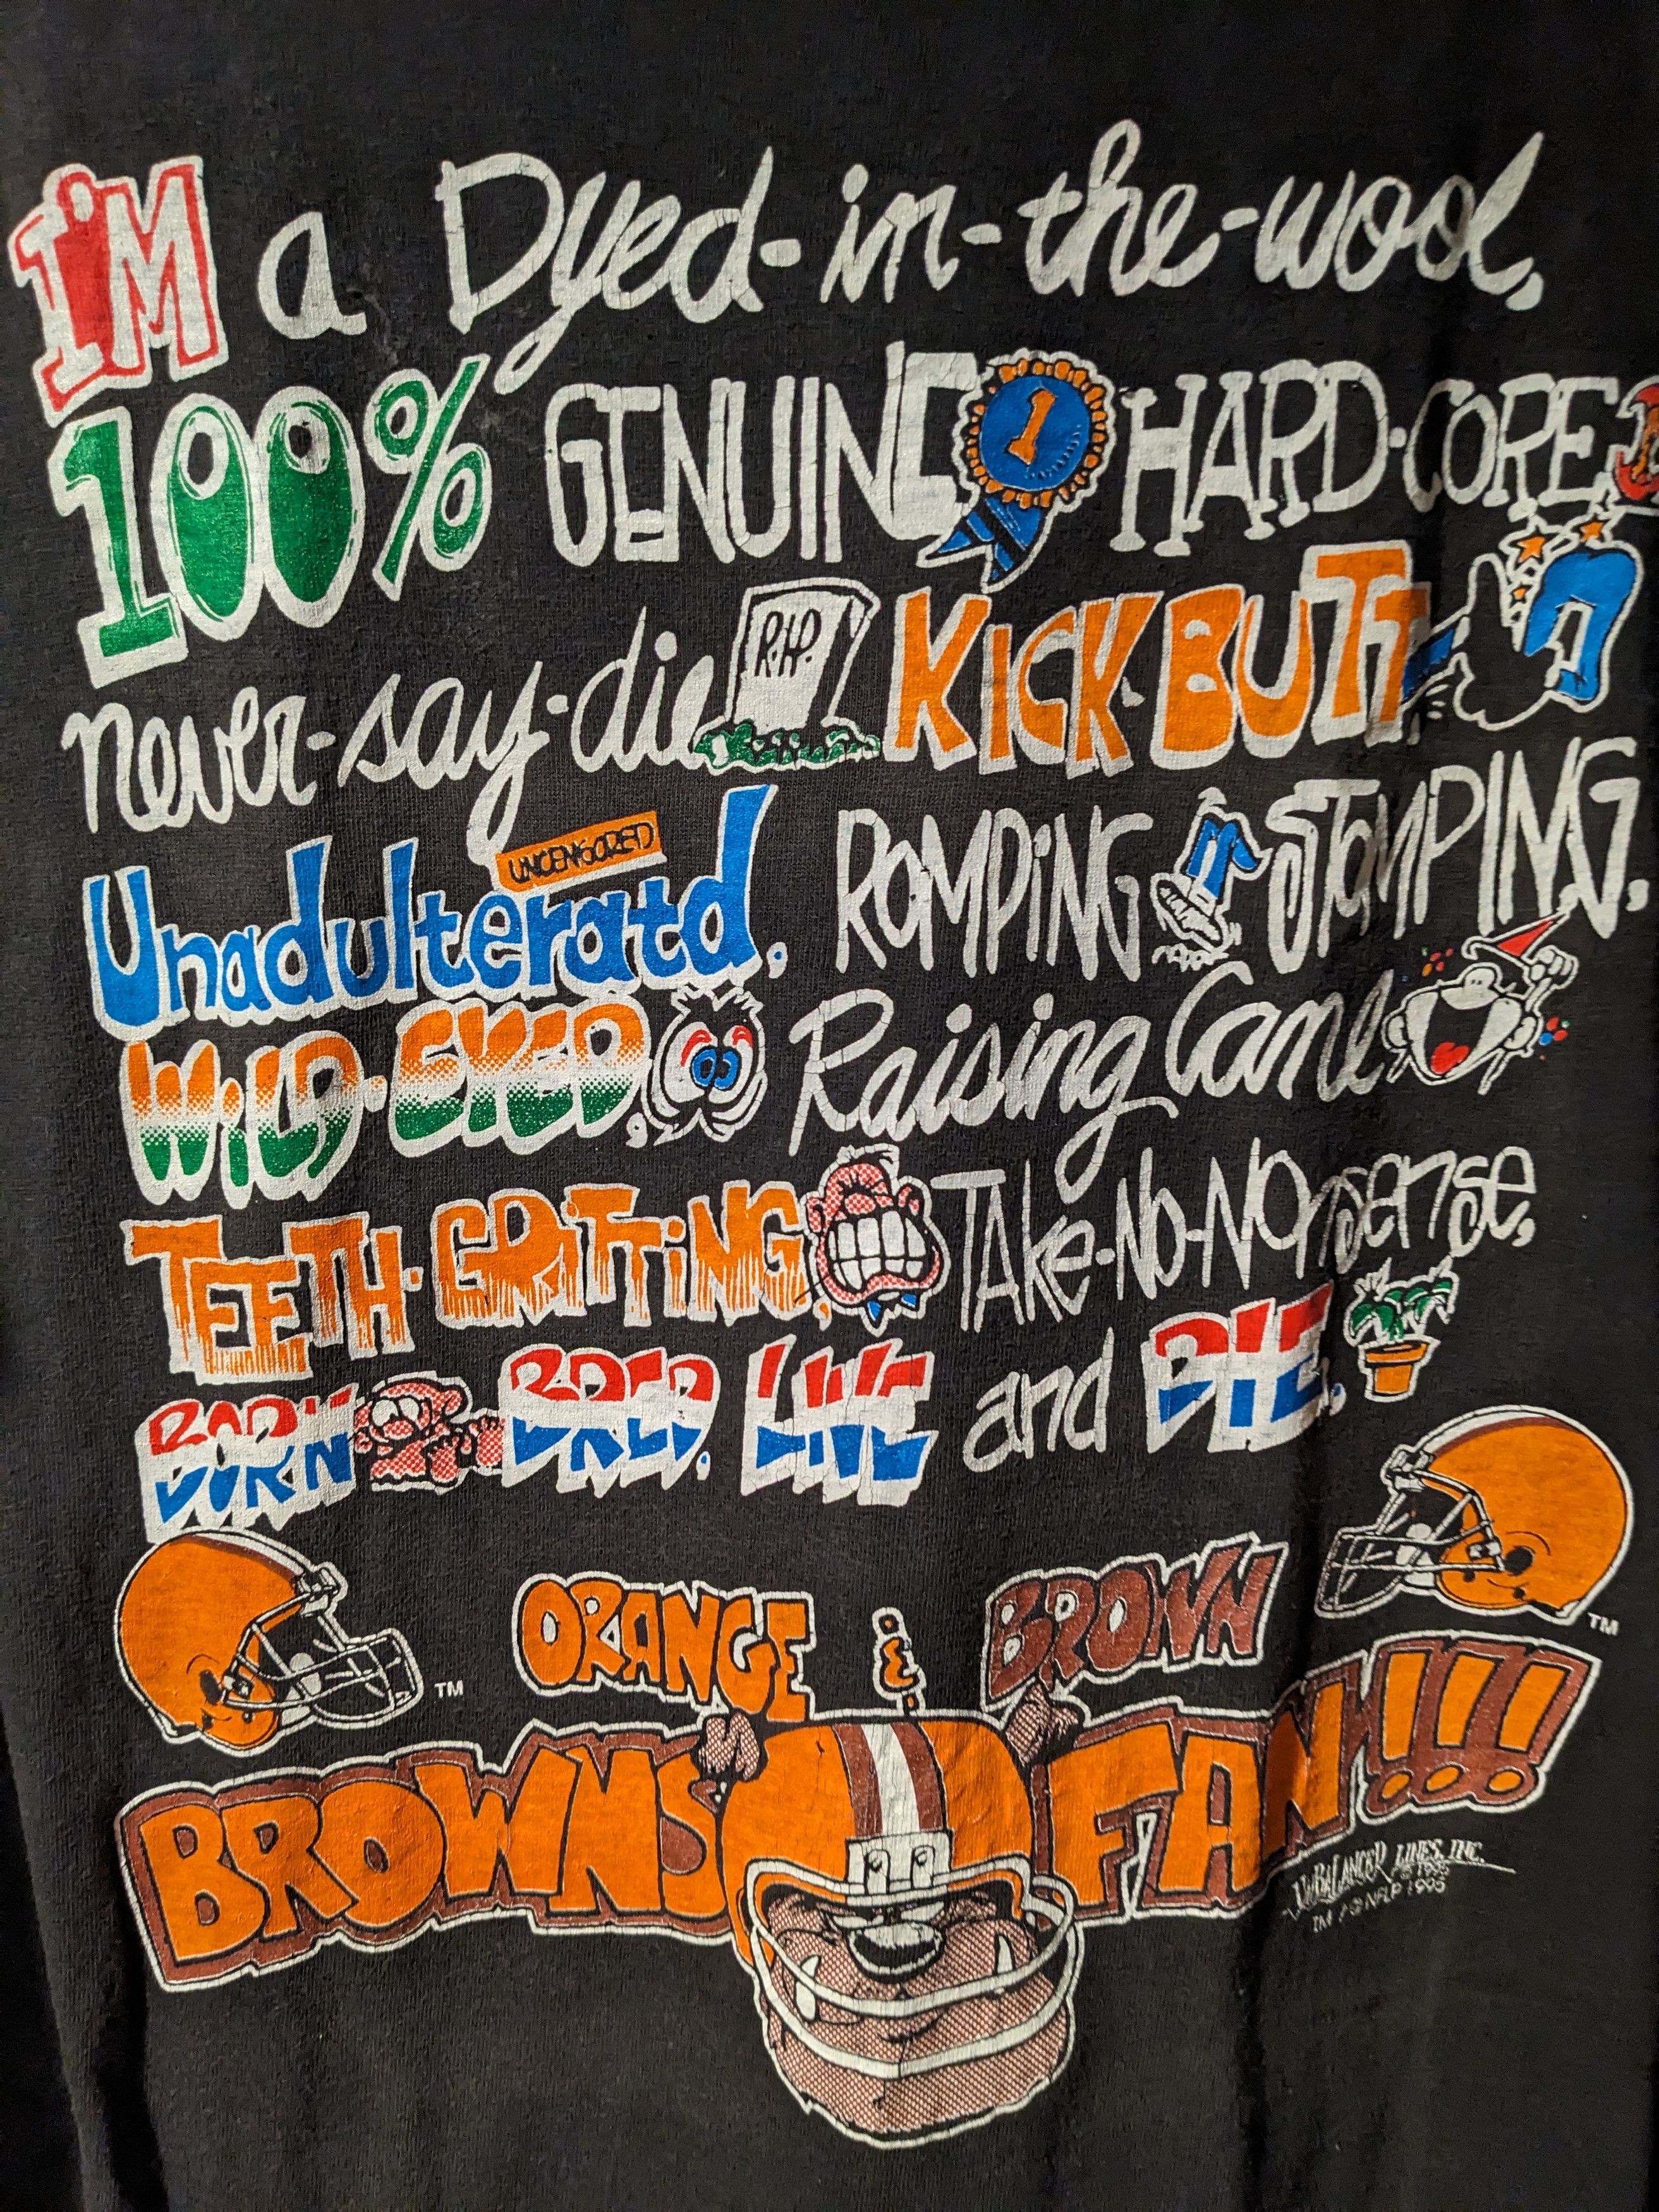 I'M a Dyed-in-the-wool,
100% GENUINE 1 HARD-CORE
never-say-die R.I.P. KICK-BUTT
UNCENSORED
Unadulteratd, ROMPiNG STOMPING,
WiLD-EYED, Raising Cane
TEETH-GRiTTiNG, TAke-No-NOnsense,
BORN BRED, LIVE and DIE,
ORANGE & BROWN
TM
TM
BROWNS FAN!!!
NUTBALANCER LINES, INC.
© 1995
TM / © NFLP 1995